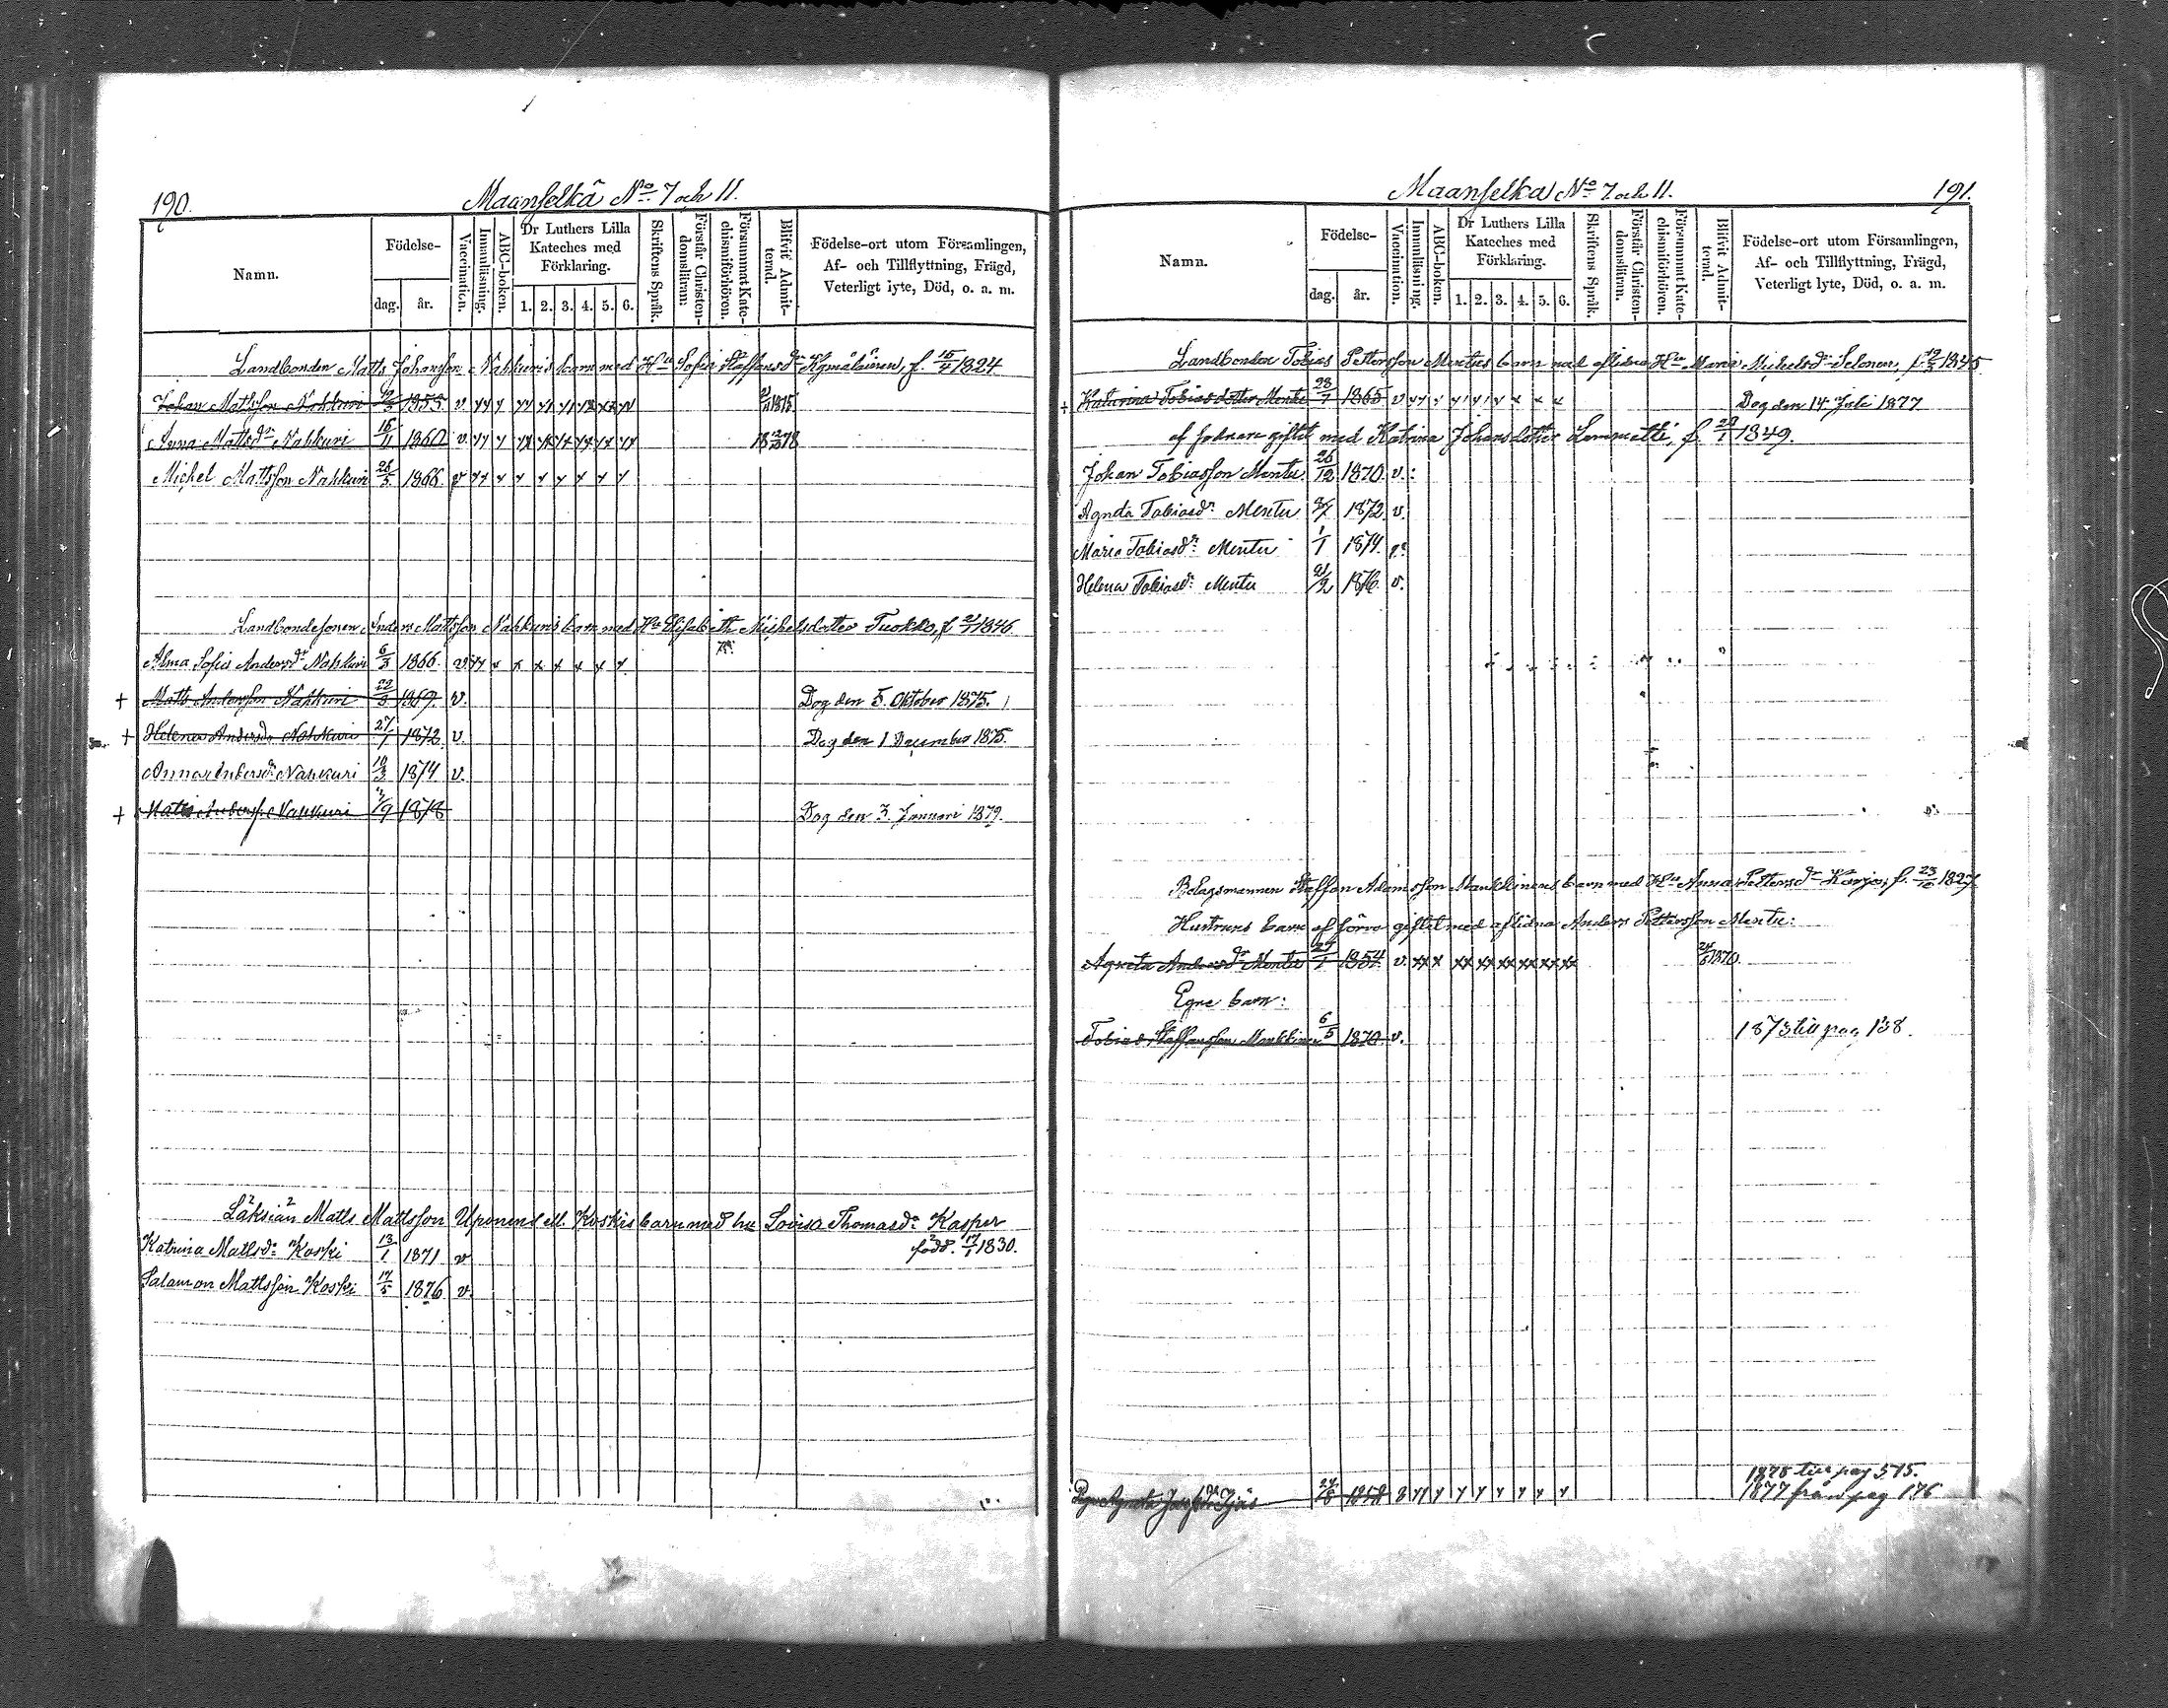 190.
Maanselkä No 7 och 11.
Namn.
Födelse-
dag.
år.
Vaccination.
Innanläsning.
ABC-boken.
Dr Luthers Lilla Kateches med Förklaring.
1. 2. 3. 4. 5. 6.
Skriftens Språk.
Förstår Christendomsläran.
Försummat Katechismiförhören.
Blifvit Admitterad.
Födelse-ort utom Församlingen,
Af- och Tillflyttning, Frägd,
Veterligt lyte, Död, o. a. m.
Landbonden Matts Johansson Nahkuris barn med Hu Sofia Staffansdr f. 15/4 1824
Johan Mattsson Nahkuri 1853 v. 1875
Anna Mattsdr Nahkuri 15/11 1860 v. 1878
Michel Mattsson Nahkuri 28/5 1866 v
Landbondesonen Anders Mattsson Nahkuris barn med Hu Elisabeth Michelsdotter Tuokko, f. 1846
Alma Sofia Andersdr Nahkuri 6/3 1866 v
+ Matts Andersson Nahkuri 1869 v. Dog den 5. Oktober 1875.
+ Helena Andersdr Nahkuri 27/1 1872 v. Dog den 1 December 1875.
Anna Andersdr Nahkuri 10/3 1874 v.
+ Matts Anderss. Nahkuri 1878 Dog den 3. Januari 1879.
Matts Mattsson Uponens ell. Koskis barn med hu Lovisa Thomasdr Kasper
född. 17/1 1830.
Katrina Mattsdr Koski 13/1 1871 v
Salamon Mattsson Koski 17/5 1876 v
191.
Maanselkä No 7 och 11.
Namn.
Födelse-
dag.
år.
Vaccination.
Innanläsning.
ABC-boken.
Dr Luthers Lilla Kateches med Förklaring.
1. 2. 3. 4. 5. 6.
Skriftens Språk.
Förstår Christendomsläran.
Försummat Katechismiförhören.
Blifvit Admitterad.
Födelse-ort utom Församlingen,
Af- och Tillflyttning, Frägd,
Veterligt lyte, Död, o. a. m.
Landbonden Tobias Pettersson Mentus barn med aflidna Hu Maria Michelsdr f. 1845
+ Katarina Tobiasdotter Mentu 28/7 1865 v Dog den 14 Juli 1877
af sednare giftet med Katrina Johansdotter f. 1849.
Johan Tobiasson Mentu 26/12 1870. v.
Agneta Tobiasdr Mentu 1872 v.
Maria Tobiasdr Mentu 1/1 1874.
Helena Tobiasdr Mentu 21/2 1876. v.
Bolagsmannen Staffan Adamsson Mankkinens barn med Hu Anna Pettersdr f. 1827
Hustruns barn af förra giftet med aflidna Anders Pettersson Mentu:
Agneta Andersdr Mentu 1854 v. 1870.
Egne barn:
Tobias Staffansson Mankkinen 6/5 1870 v. 1873 till pag 138.
1878 till pag 575.
Pig. Agneta Josefsdr 1858 1877 från pag 176